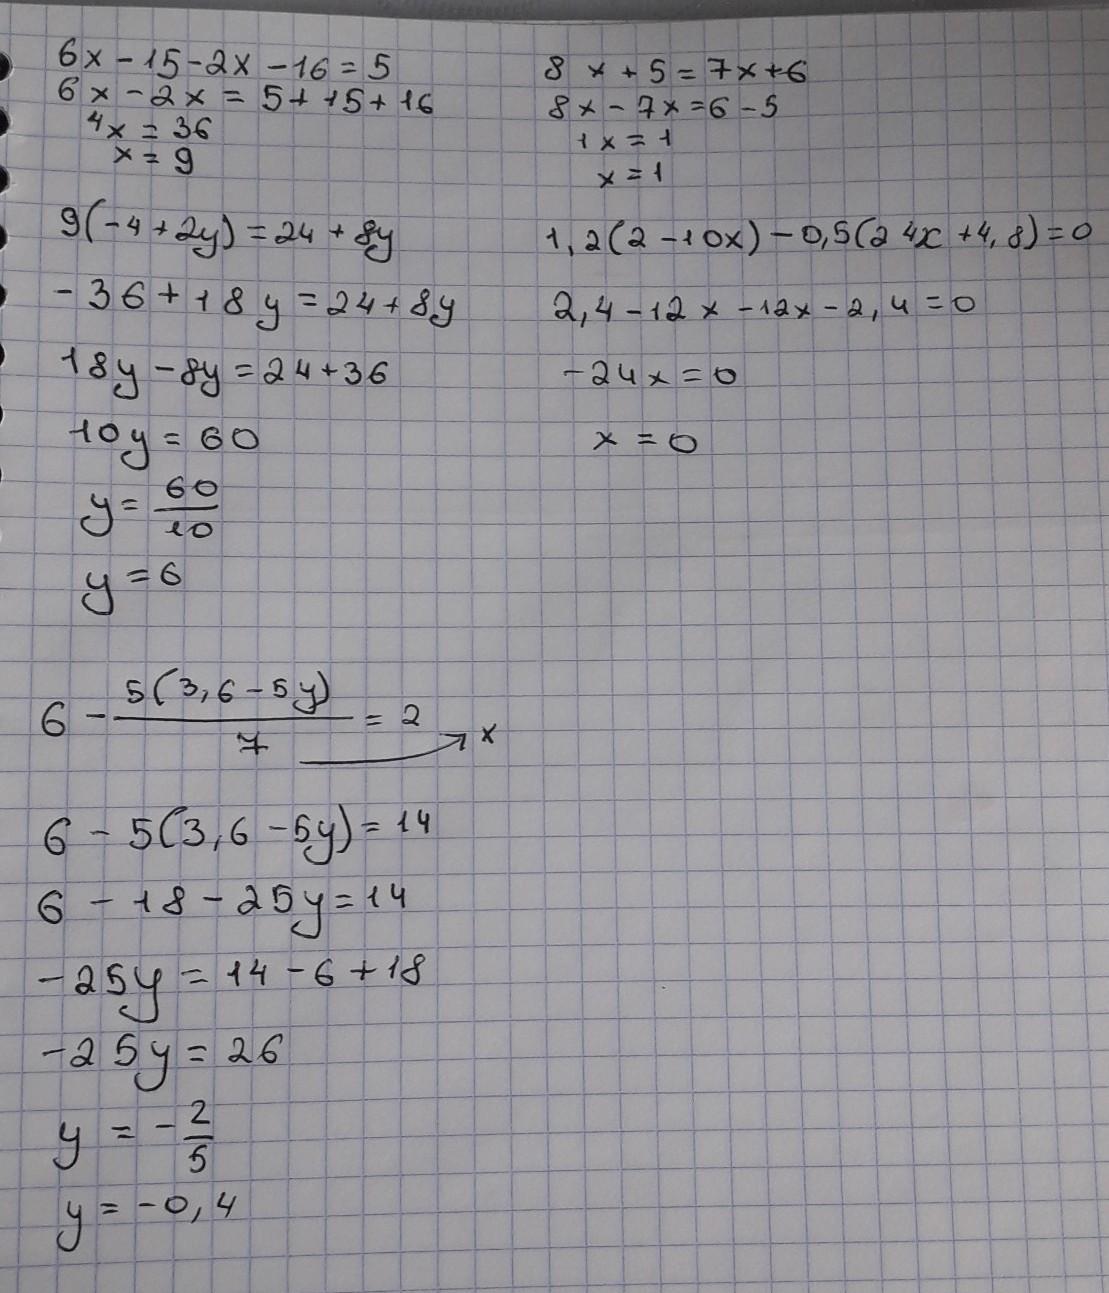 6x - 15 - 2x - 16 = 5
6x - 2x = 5 + 15 + 16
4x = 36
x = 9
8x + 5 = 7x + 6
8x - 7x = 6 - 5
1x = 1
x = 1
9(-4 + 2y) = 24 + 8y
-36 + 18y = 24 + 8y
18y - 8y = 24 + 36
10y = 60
y = 60/10
y = 6
1,2(2 - 10x) - 0,5(24x + 4,8) = 0
2,4 - 12x - 12x - 2,4 = 0
-24x = 0
x = 0
6 - 5(3,6 - 5y)/7 = 2
x
6 - 5(3,6 - 5y) = 14
6 - 18 - 25y = 14
-25y = 14 - 6 + 18
-25y = 26
y = -2/5
y = -0,4